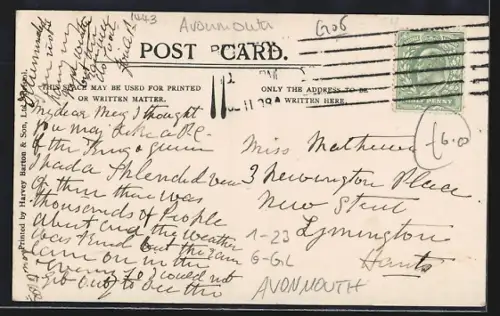 1443
AVONMOUTH
POST CARD.
THIS SPACE MAY BE USED FOR PRINTED
OR WRITTEN MATTER.
ONLY THE ADDRESS TO BE
WRITTEN HERE.
HALF PENNY
Printed by Harvey Barton & Son, Ltd., Bristol.
My dear Meg I thought
you may like a P.C.
of the King & queen
I had a Splendid view
of them there was
thousands of People
about and the weather
was kind but the rain
came on in the
evening so I could not
get out to see the
Miss Mathews
3 Newington Place
New Street
Lymington
Hants
1-23
G-GL
AVONMOUTH
£6.0